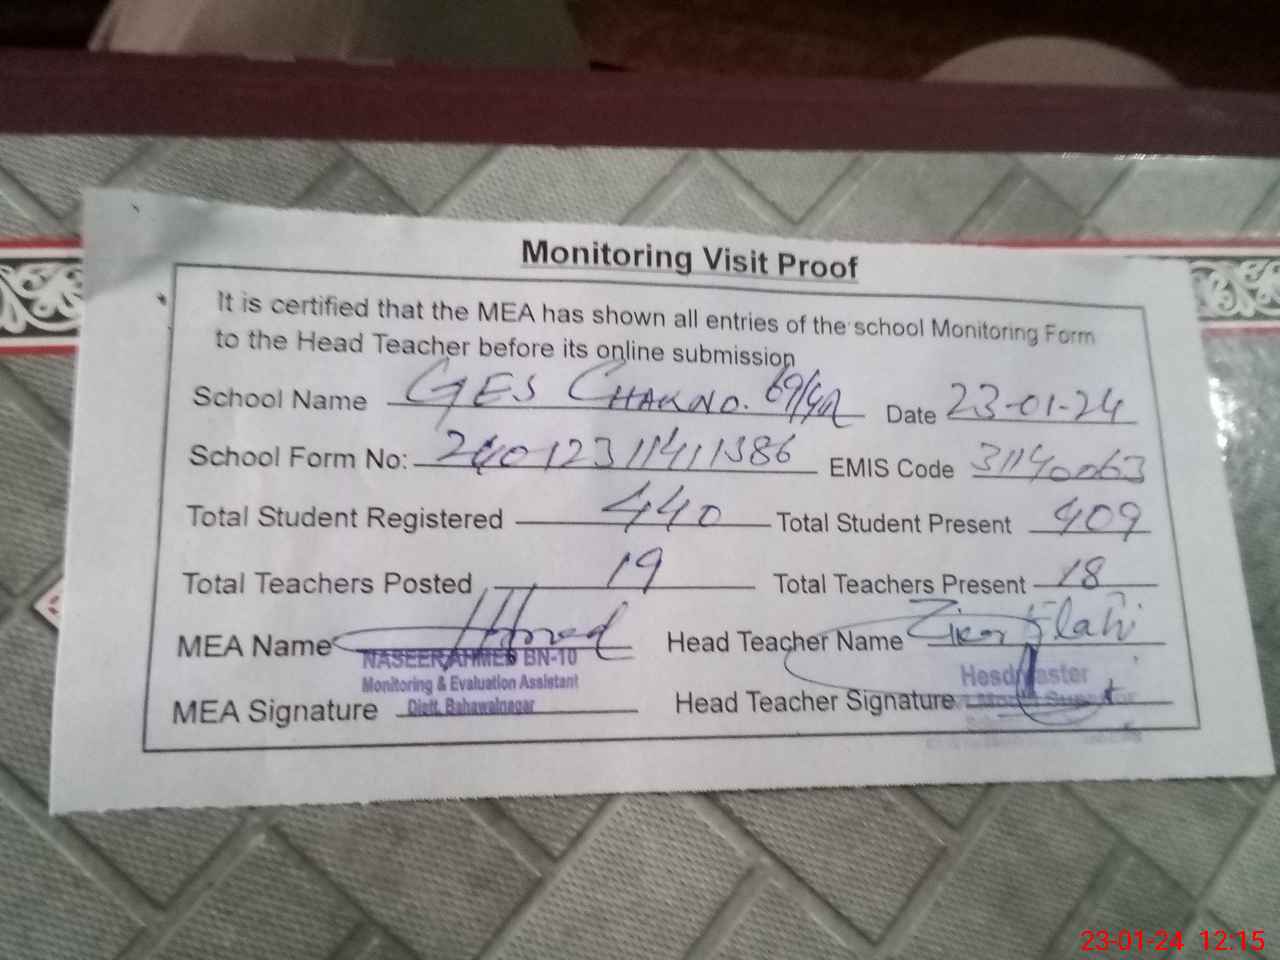 Monitoring Visit Proof
It is certified that the MEA has shown all entries of the school Monitoring Form
to the Head Teacher before its online submission
School Name GES CHAK NO. 69/4R Date 23-01-24
School Form No: 24012311411386 EMIS Code 31140063
Total Student Registered 440 Total Student Present 409
Total Teachers Posted 19 Total Teachers Present 18
MEA Name Head Teacher Name Elahi
NASEER AHMED BN-10 Headmaster
Monitoring & Evaluation Assistant
MEA Signature Distt. Bahawalnagar Head Teacher Signature
23-01-24 12:15